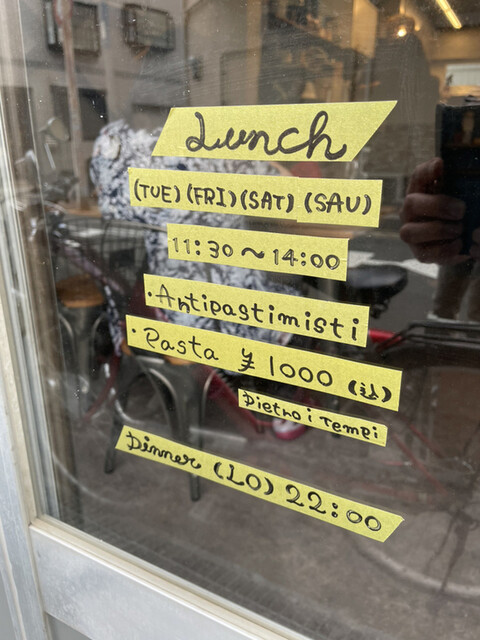 Lunch
(TUE) (FRI) (SAT) (SAU)
11:30 ~ 14:00
・Antipastimisti
・Pasta ¥1000 (込)
Dietro i Tempi
Dinner (LO) 22:00